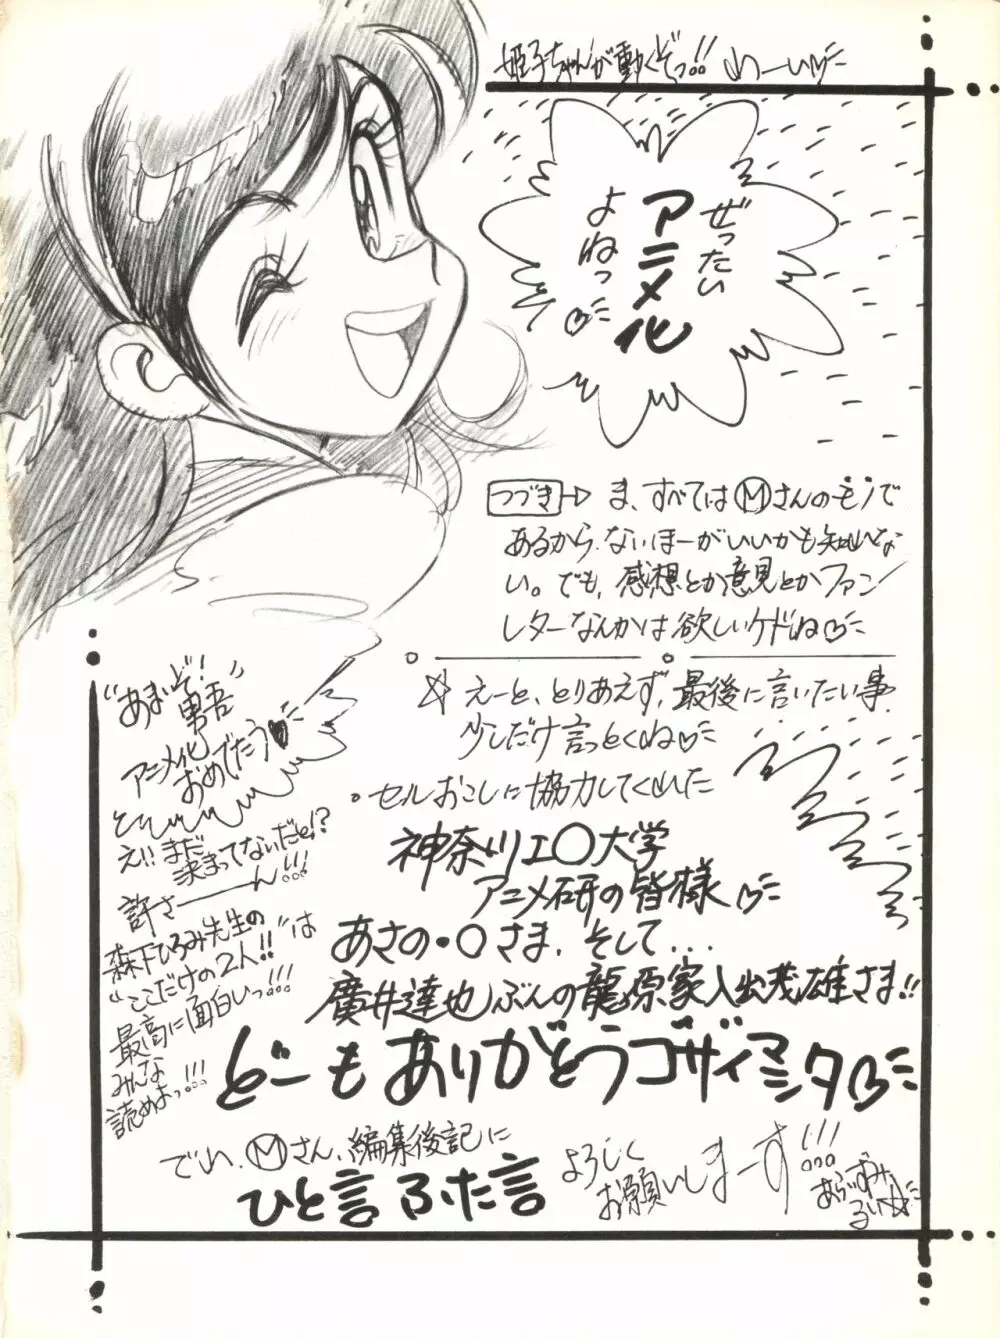 姫子ちゃんが動くぞっ!! わーいッ
ぜったい
アニメ化
よねっ
つづき ま、すべてはⓂさんのモノで
あるから、ないほーがいいかも知れな
い。でも、感想とか意見とかファン
レターなんかは欲しいケドね
☆ えーと、とりあえず、最後に言いたい事、
少しだけ言っとくね
。セルおこしに協力してくれた
神奈川工○大学
アニメ研の皆様
あさの・○さま、そして...
廣井達也ぶんの龍原家入出茂雄さま!!
どーもありがとうゴザイマシタ
でわ、Ⓜさん、編集後記に
ひと言ふた言
よろしく
お願いしまーす!!!
あらいずみ
るい
“あまいぞ!
男吾”
アニメ化
おめでとう♥
え!! まだ
決まってないだと!?
許さーーん!!!
森下ひろみ先生の
“ここだけの2人!!”は
最高に面白いっ!!!
みんな
読めよっ!!!